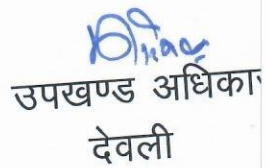 उपखण्ड अधिका
देवली